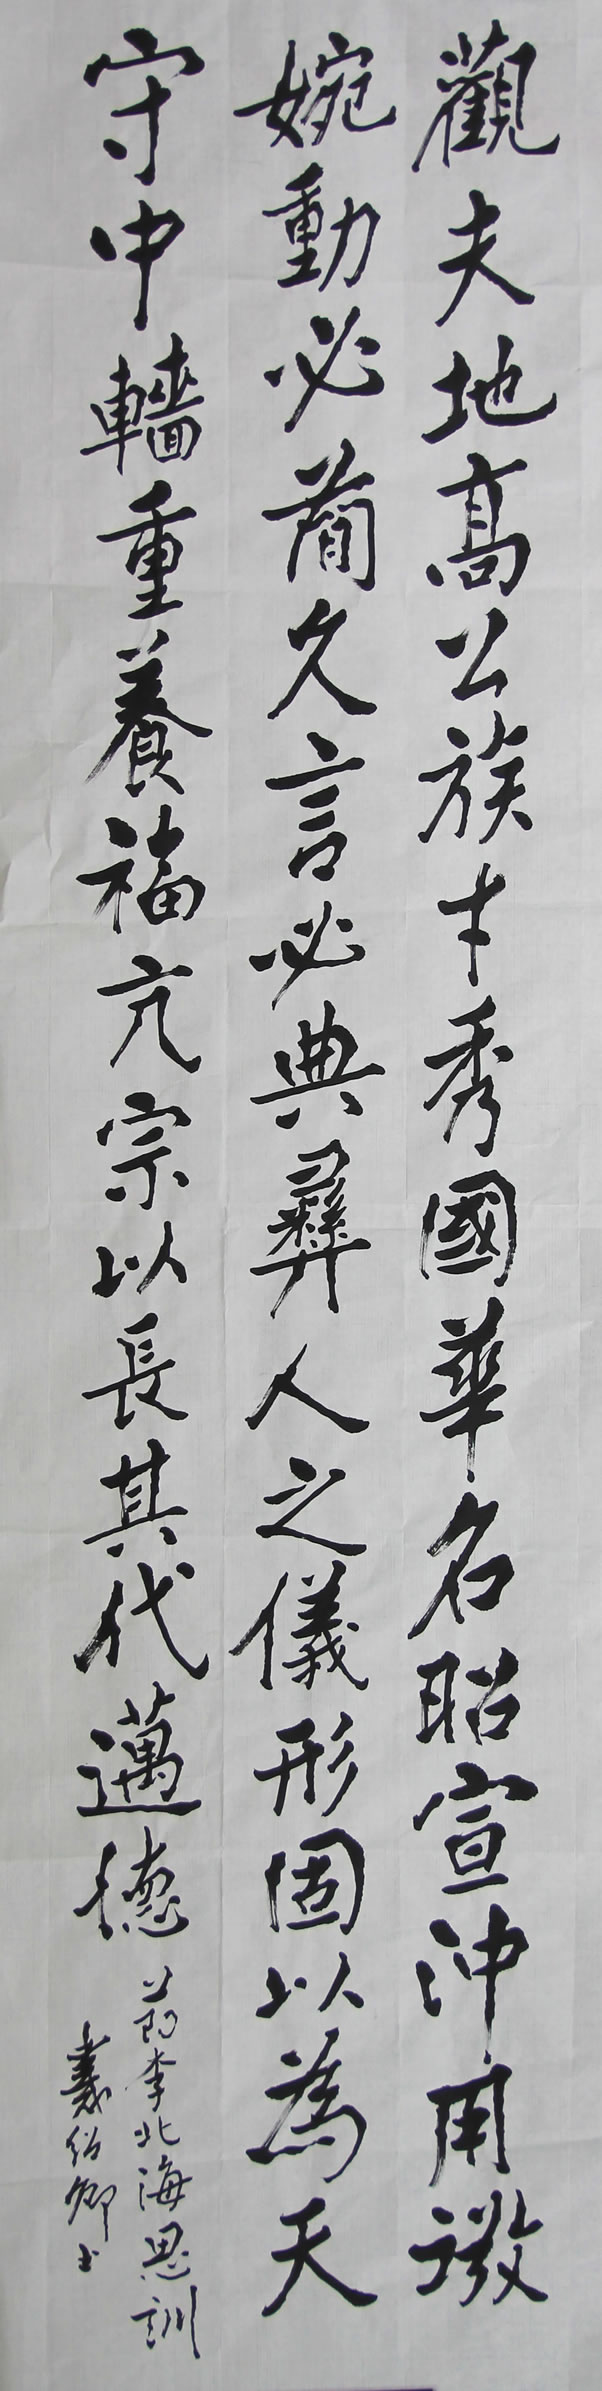 觀夫地高公族才秀國華名昭宣沖用微
婉動必簡久言必典彝人之儀形固以為天
守中轖重養福亢宗以長其代邁德
節李北海思訓
義紹卿書